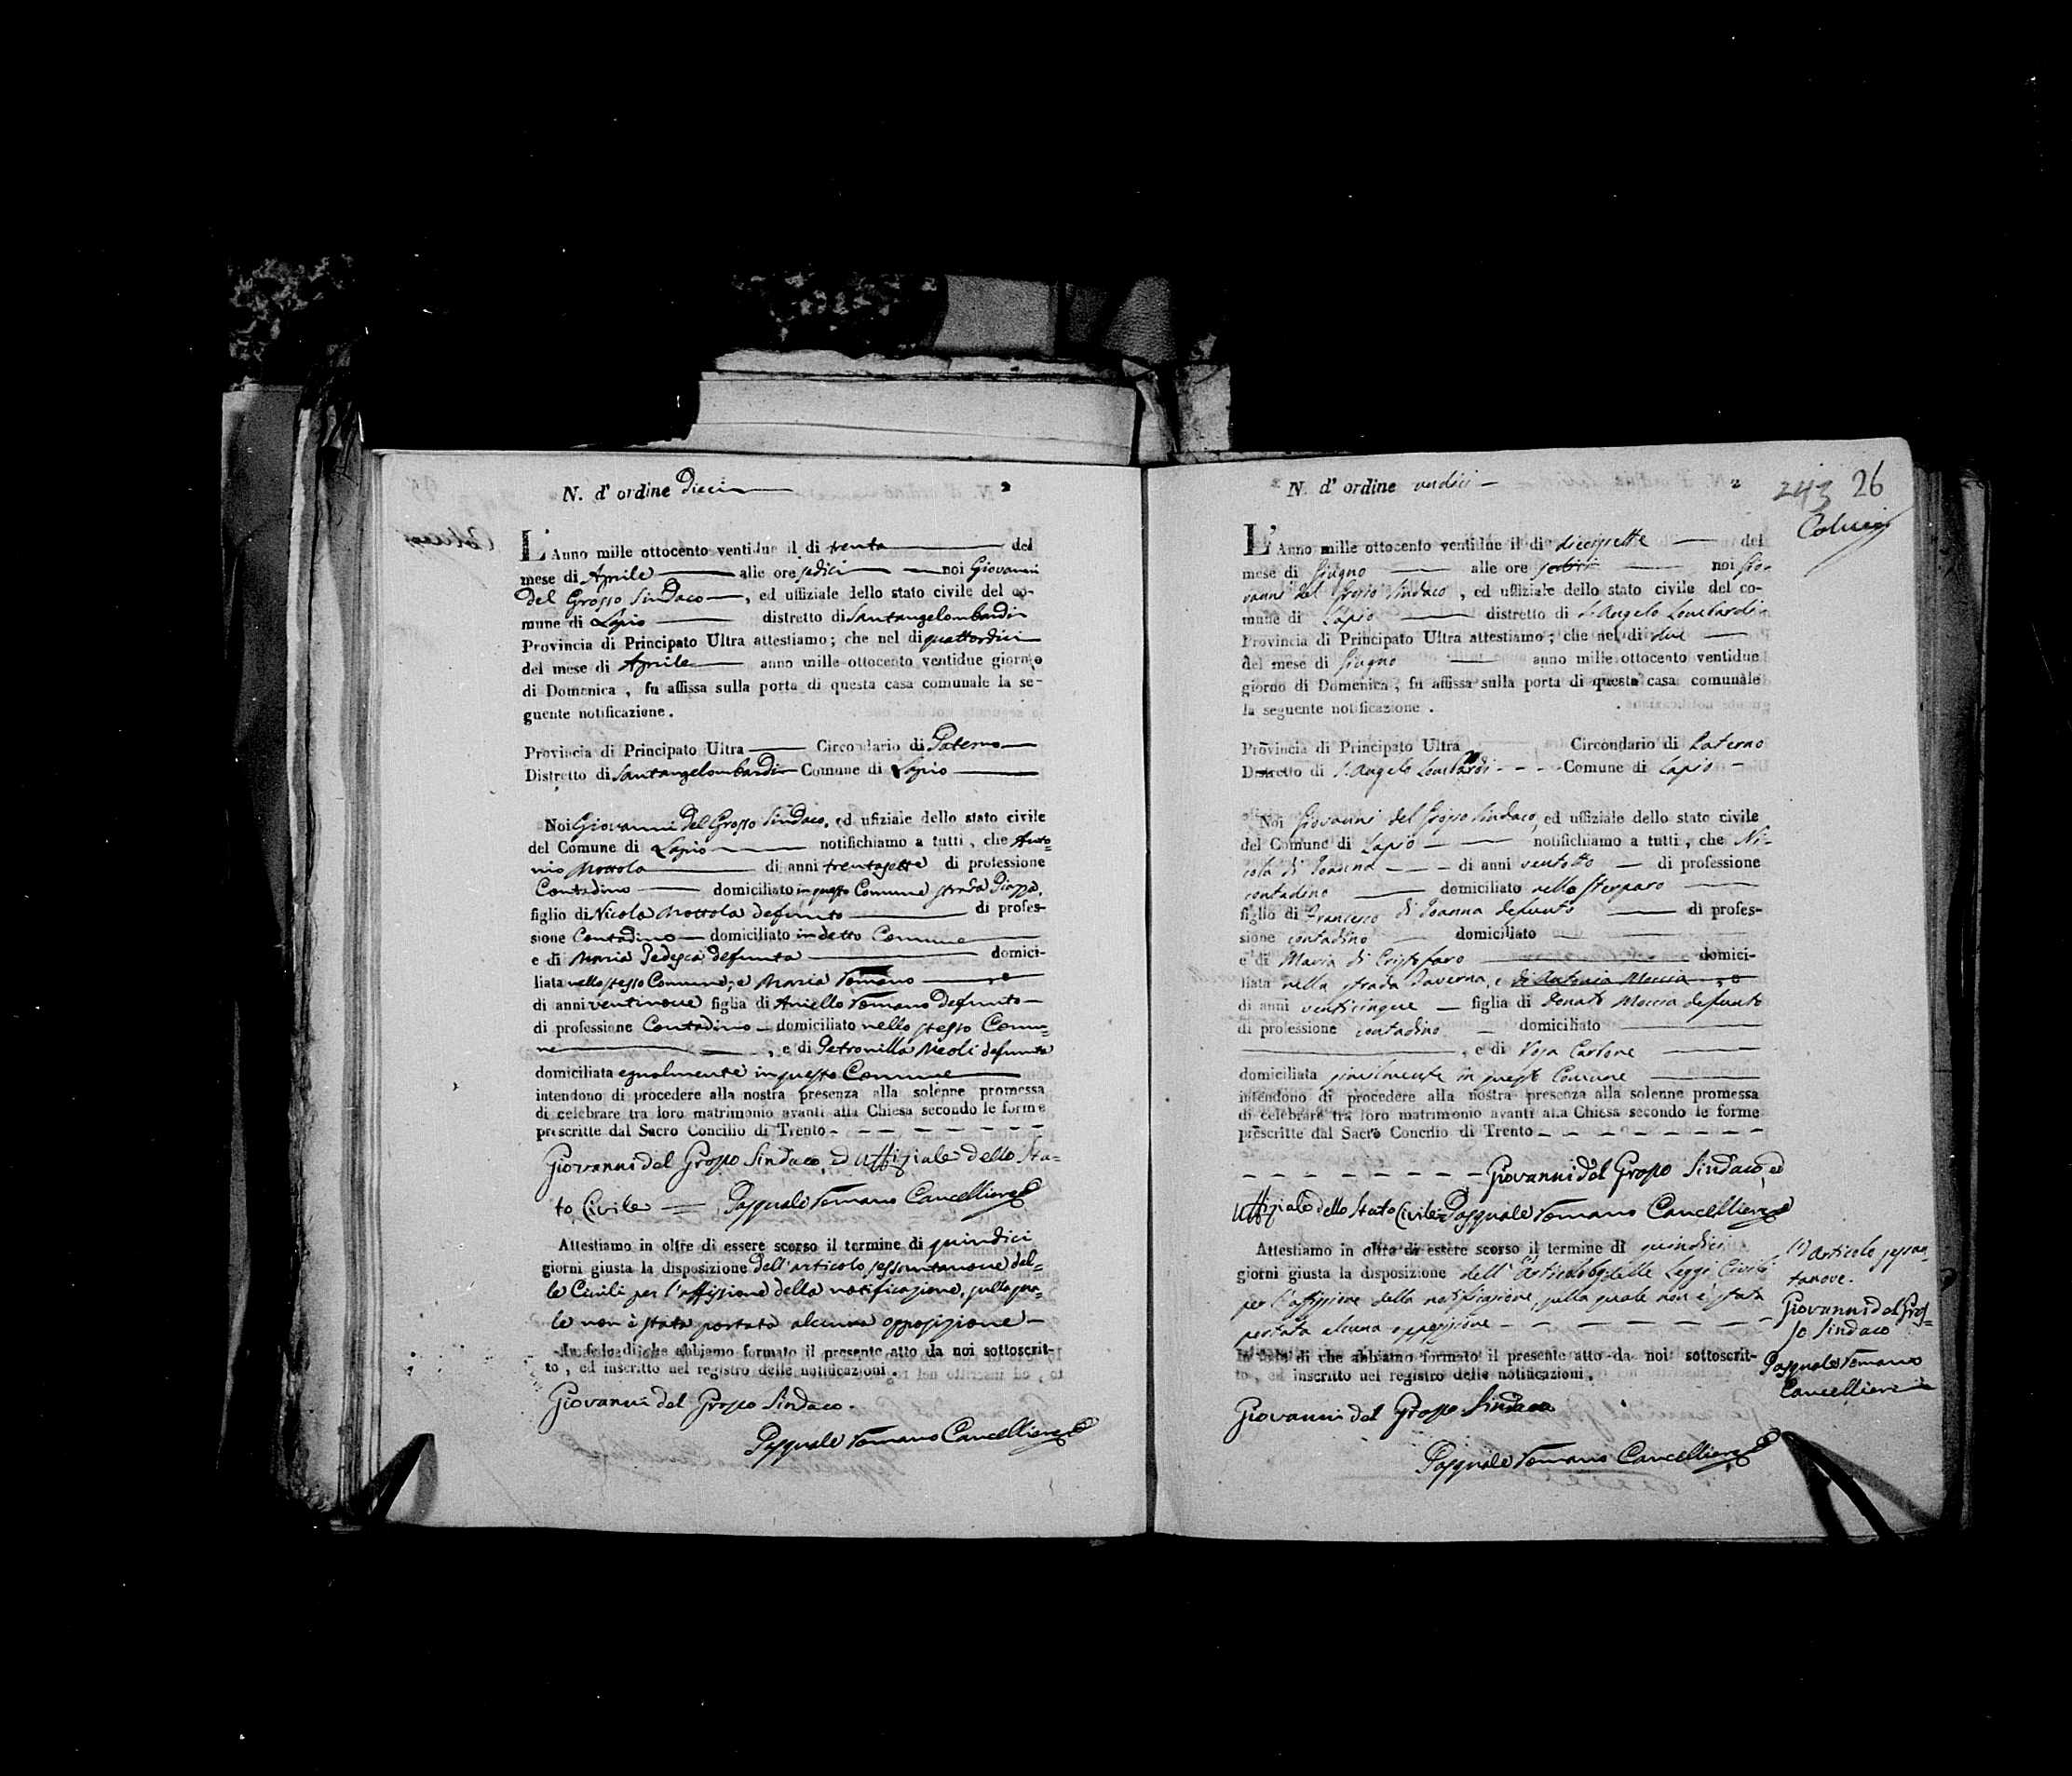 N. d' ordine Dieci
2
L'Anno mille ottocento ventidue il di trenta del
mese di Aprile alle ore sedici noi Giovanni
del Grosso Sindaco, ed uffiziale dello stato civile del co-
mune di Lapio distretto di Santangelombardi
Provincia di Principato Ultra attestiamo; che nel di quattordici
del mese di Aprile anno mille ottocento ventidue giorno
di Domenica, fu affissa sulla porta di questa casa comunale la se-
guente notificazione.
Provincia di Principato Ultra Circondario di Paterno
Distretto di Santangelombardi Comune di Lapio
Noi Giovanni del Grosso Sindaco, ed ufiziale dello stato civile
del Comune di Lapio notifichiamo a tutti, che Anto=
nio Mottola di anni trentasette di professione
Contadino domiciliato in questo Comune strada Piazza,
figlio di Nicola Mottola defunto di profes-
sione Contadino domiciliato in detto Comune
e di Maria Tedesca defunta domici-
liata nello stesso Comune, e Maria Romano
di anni ventinove figlia di Aniello Romano defunto
di professione Contadino domiciliato nello stesso Comu=
ne, e di Petronilla Meoli defunta
domiciliata egualmente in questo Comune
intendono di procedere alla nostra presenza alla solenne promessa
di celebrare tra loro matrimonio avanti alla Chiesa secondo le forme
prescritte dal Sacro Concilio di Trento
Giovanni del Grosso Sindaco, ed uffiziale dello Sta=
to Civile = Pasquale Romano Cancelliere
Attestiamo in oltre di essere scorso il termine di quindici
giorni giusta la disposizione dell'articolo sessantanove del=
le Civili per l'affissione della notificazione, sulla qua=
le non è stata portata alcuna opposizione
In fede di che abbiamo formato il presente atto da noi sottoscrit-
to, ed inscritto nel registro delle notificazioni.
Giovanni del Grosso Sindaco.
Pasquale Romano Cancelliere
N. d' ordine undici
2
243 26
L'Anno mille ottocento ventidue il di diecisette del
mese di Giugno alle ore noi Gio-
vanni del Grosso Sindaco, ed uffiziale dello stato civile del co-
mune di Lapio distretto di S. Angelo Lombardi
Provincia di Principato Ultra attestiamo; che nel di due
del mese di Giugno anno mille ottocento ventidue
giorno di Domenica, fu affissa sulla porta di questa casa comunale
la seguente notificazione.
Provincia di Principato Ultra Circondario di Paterno
Distretto di S. Angelo Lombardi Comune di Lapio
Noi Giovanni del Grosso Sindaco, ed uffiziale dello stato civile
del Comune di Lapio notifichiamo a tutti, che Ni-
cola di Joanna di anni ventotto di professione
contadino domiciliato nello Sterparo
figlio di Francesco di Joanna defunto di profes-
sione contadino domiciliato
e di Maria di Cristofaro domici-
liata nella strada Taverna, e di Antonia Moccia
di anni venticinque figlia di Donato Moccia defunto
di professione contadino domiciliato
, e di Rosa Carbone
domiciliata similmente in questo Comune
intendono di procedere alla nostra presenza alla solenne promessa
di celebrare tra loro matrimonio avanti alla Chiesa secondo le forme
prescritte dal Sacro Concilio di Trento
Giovanni del Grosso Sindaco, ed
uffiziale dello Stato Civile = Pasquale Romano Cancelliere
Attestiamo in oltre di essere scorso il termine di quindici
giorni giusta la disposizione dell' articolo 69 delle Leggi Civili
per l'affissione della notificazione, sulla quale non è stata
portata alcuna opposizione
In fede di che abbiamo formato il presente atto da noi sottoscrit-
to, ed inscritto nel registro delle notificazioni.
Giovanni del Grosso Sindaco
Pasquale Romano Cancelliere
(1) articolo sessan-
tanove.
Giovanni del Gros=
so Sindaco
Pasquale Romano
Cancelliere